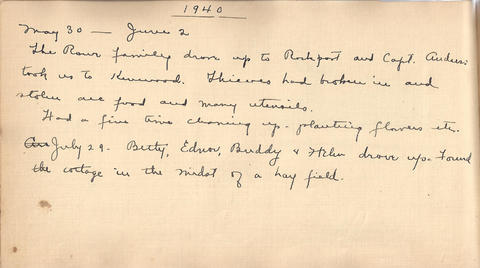 1940
May 30 — June 2
The Rowe family drove up to Rockport and Capt.
took us to Kenwood. Thieves had broken in and
stolen all food and many utensils.
Had a fine time cleaning up - planting flowers etc.
July 29. Betty, Edna, Buddy & Helen drove up. Found
the cottage in the midst of a hay field.